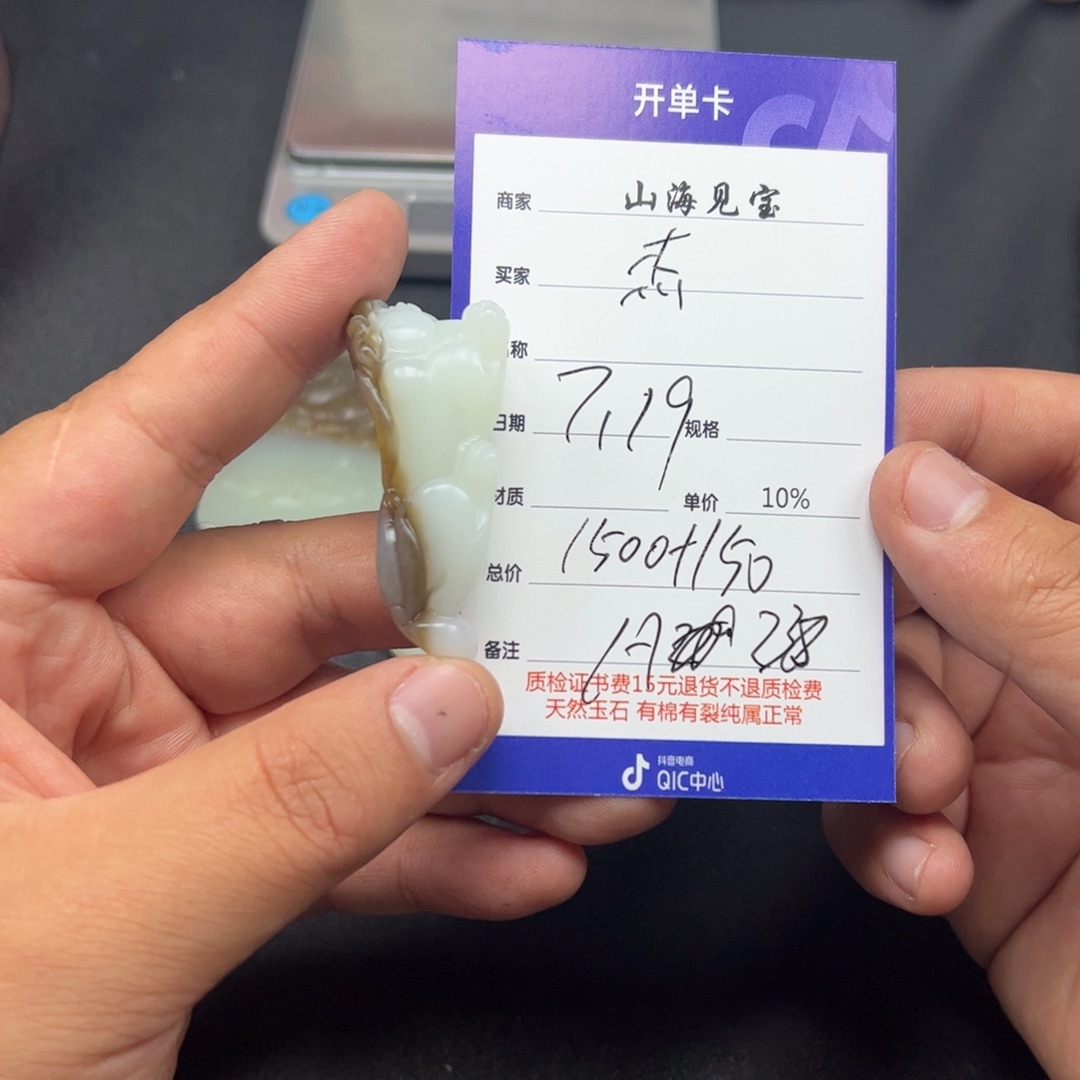 开单卡
商家 山海见宝
买家 杰
称
日期 7.19 规格
材质 单价 10%
总价 1500+150
备注
质检证书费15元退货不退质检费
天然玉石 有棉有裂纯属正常
抖音电商
QIC中心